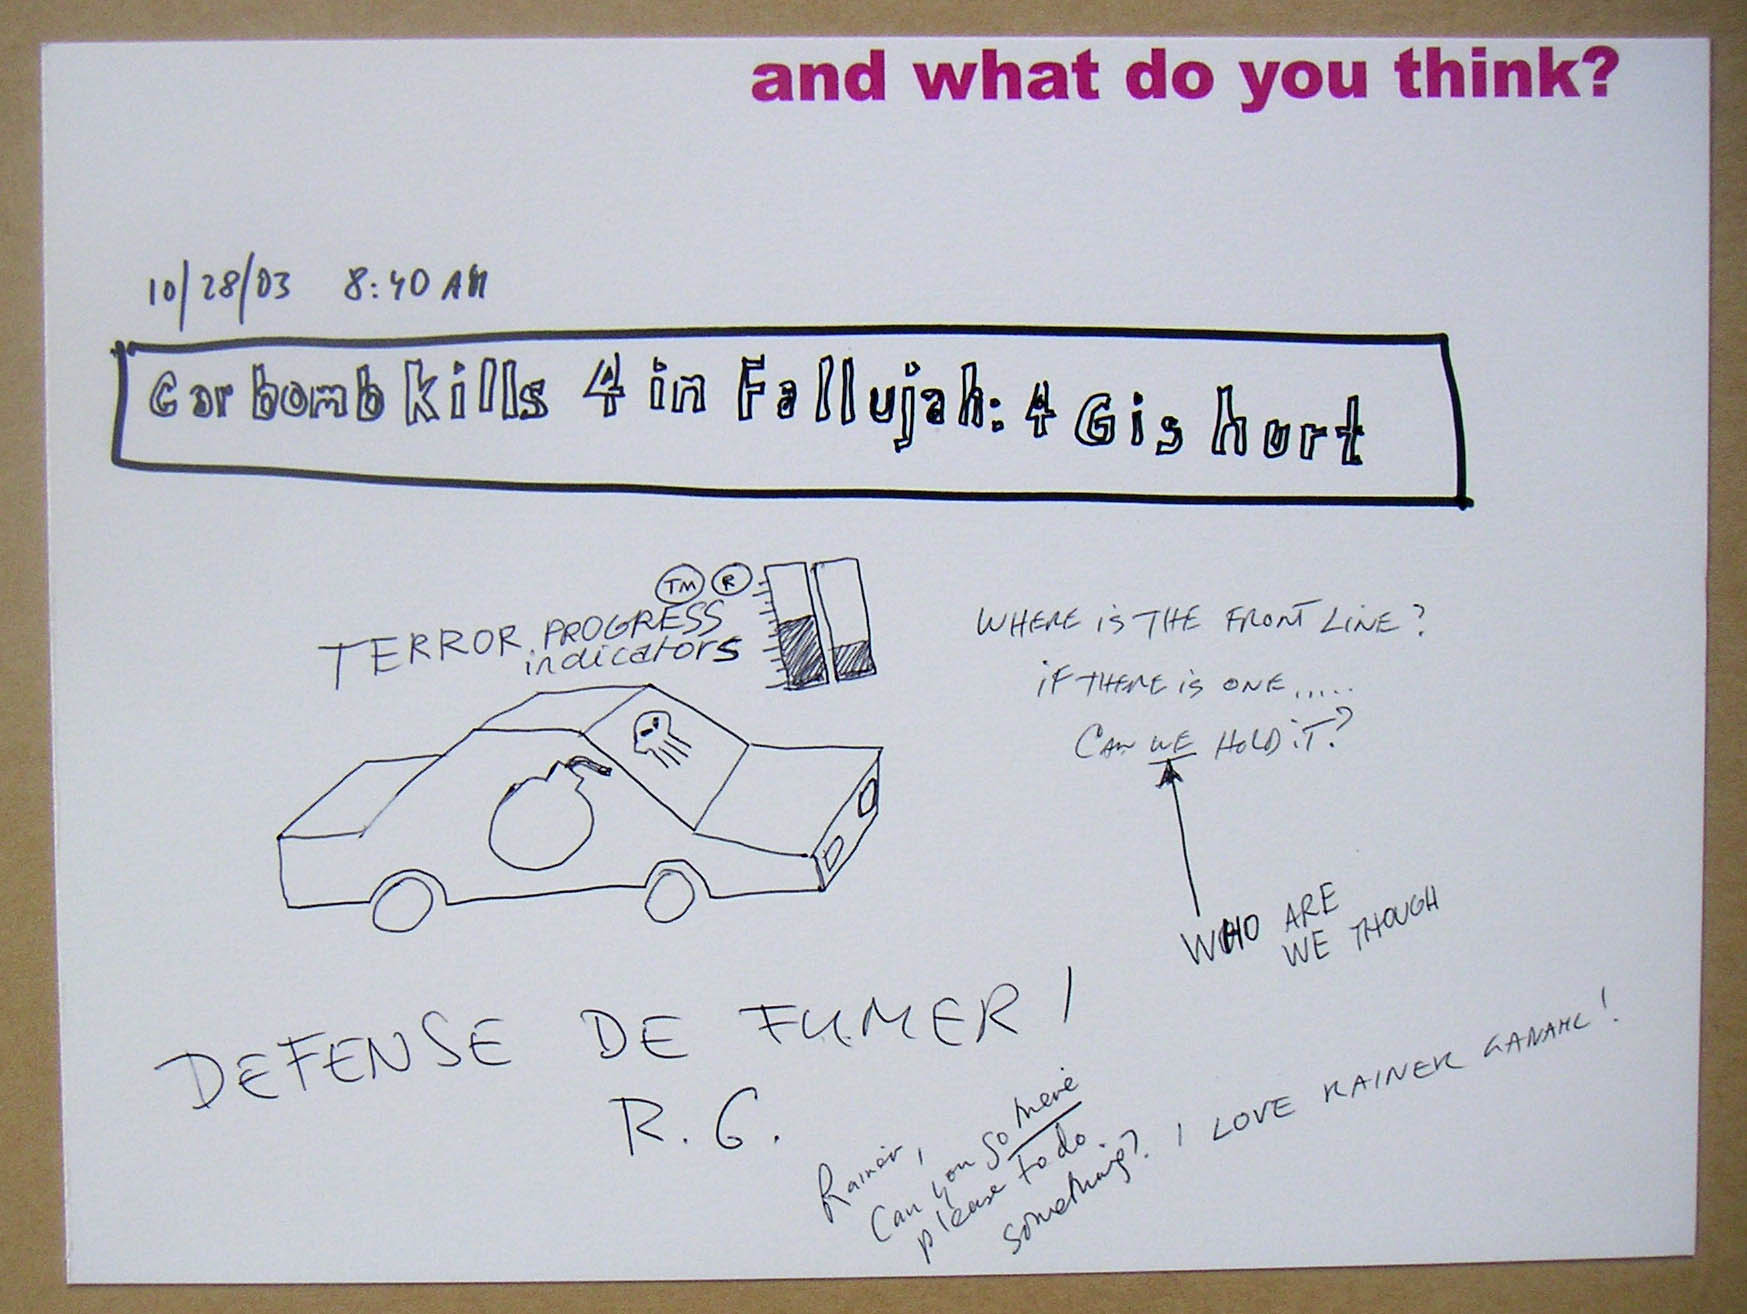 and what do you think?
10/28/03 8:40 AM
Car bomb kills 4 in Fallujah: 4 Gis hurt
TM R
TERROR PROGRESS
indicators
WHERE iS THE FRONT LINE?
iF THERE iS ONE.....
CAN WE HOLD iT?
WHO ARE
WE THOUGH
DEFENSE DE FUMER!
R.G.
Rainer,
Can you so
please to do
something? I LOVE RAINER GANAHL!